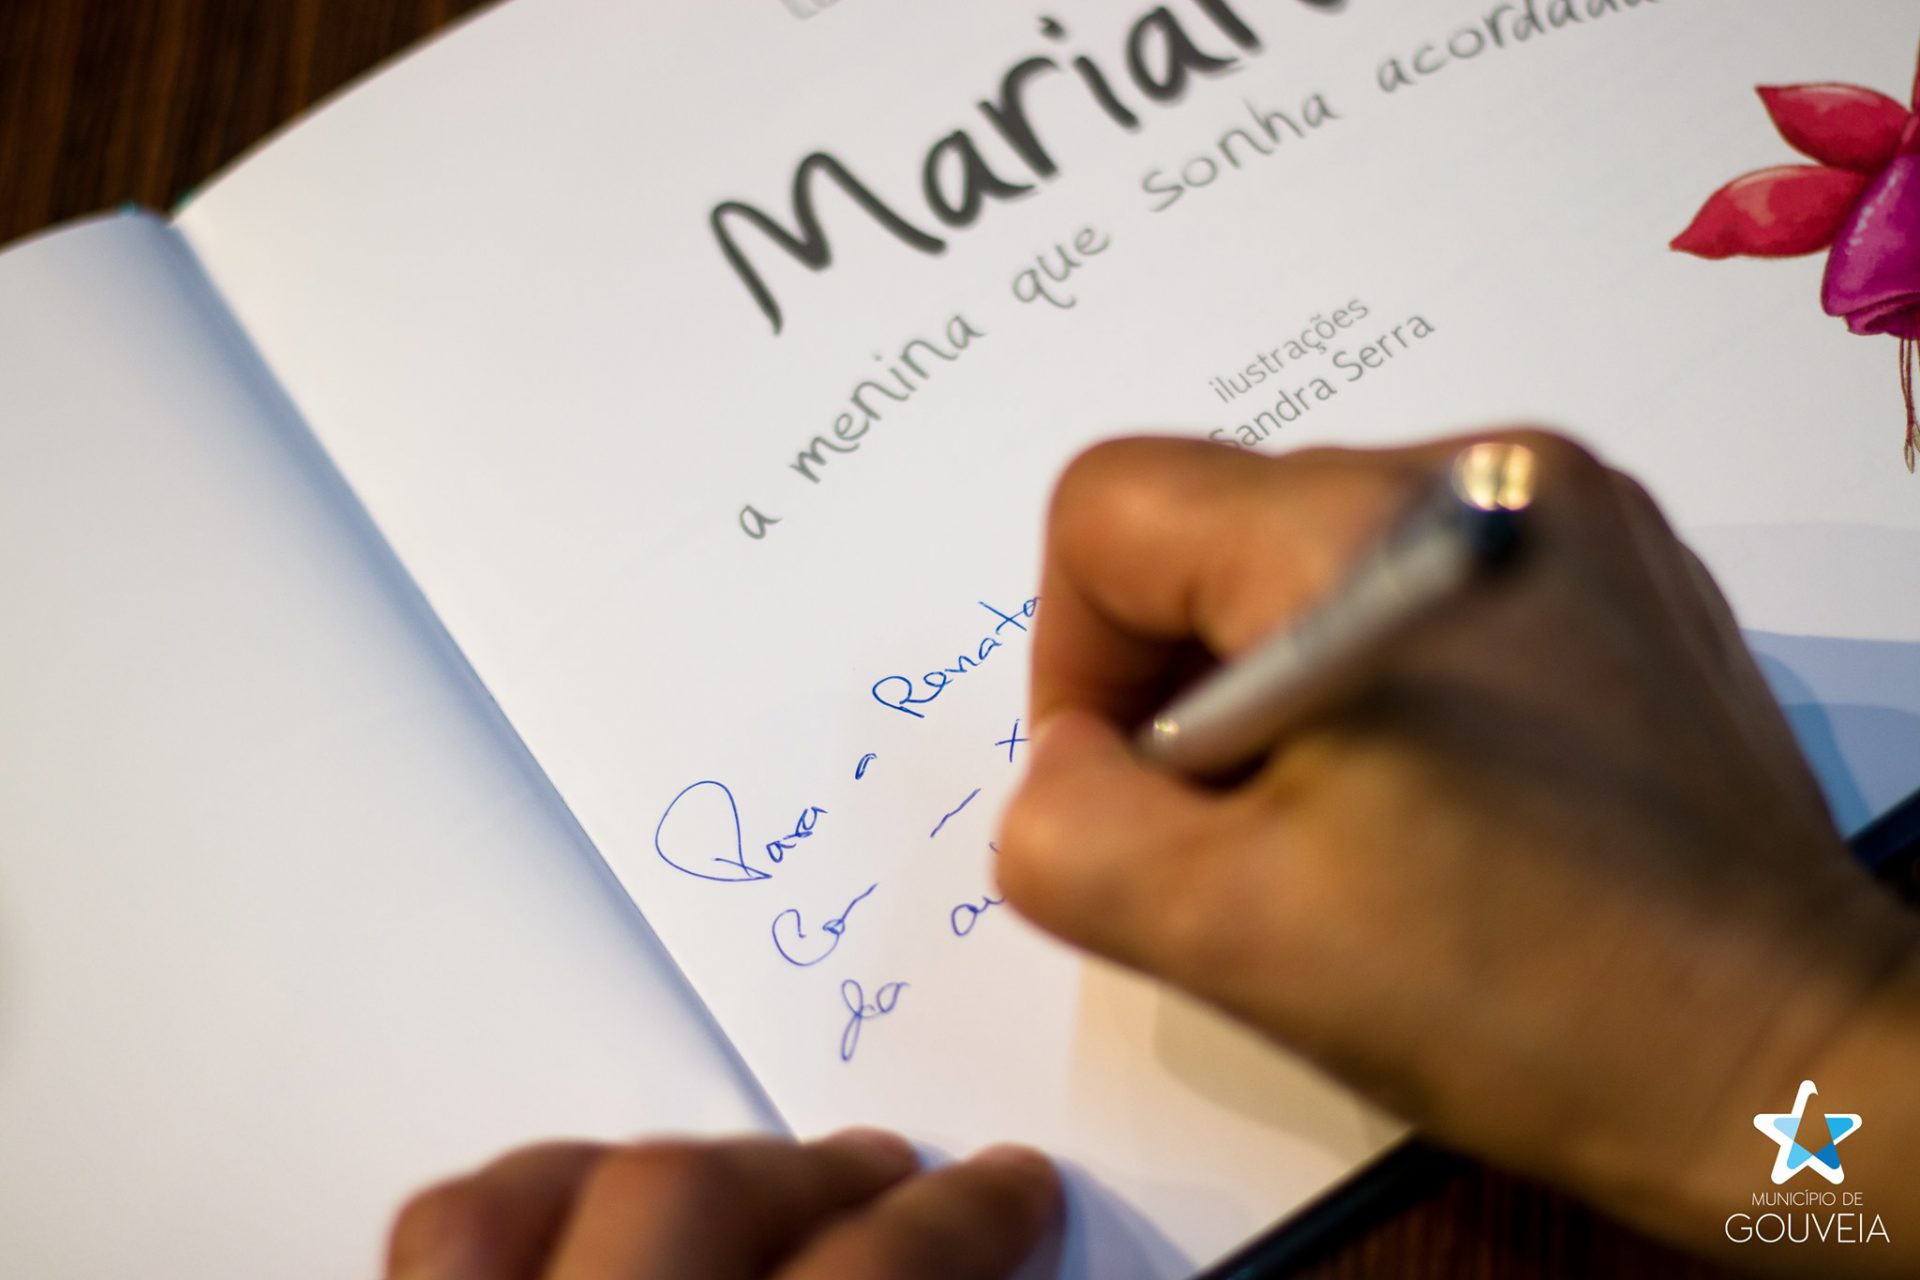 Marian
a menina que sonha acordada
ilustrações
Sandra Serra
Para a Renata
Com
da
MUNICÍPIO DE
GOUVEIA